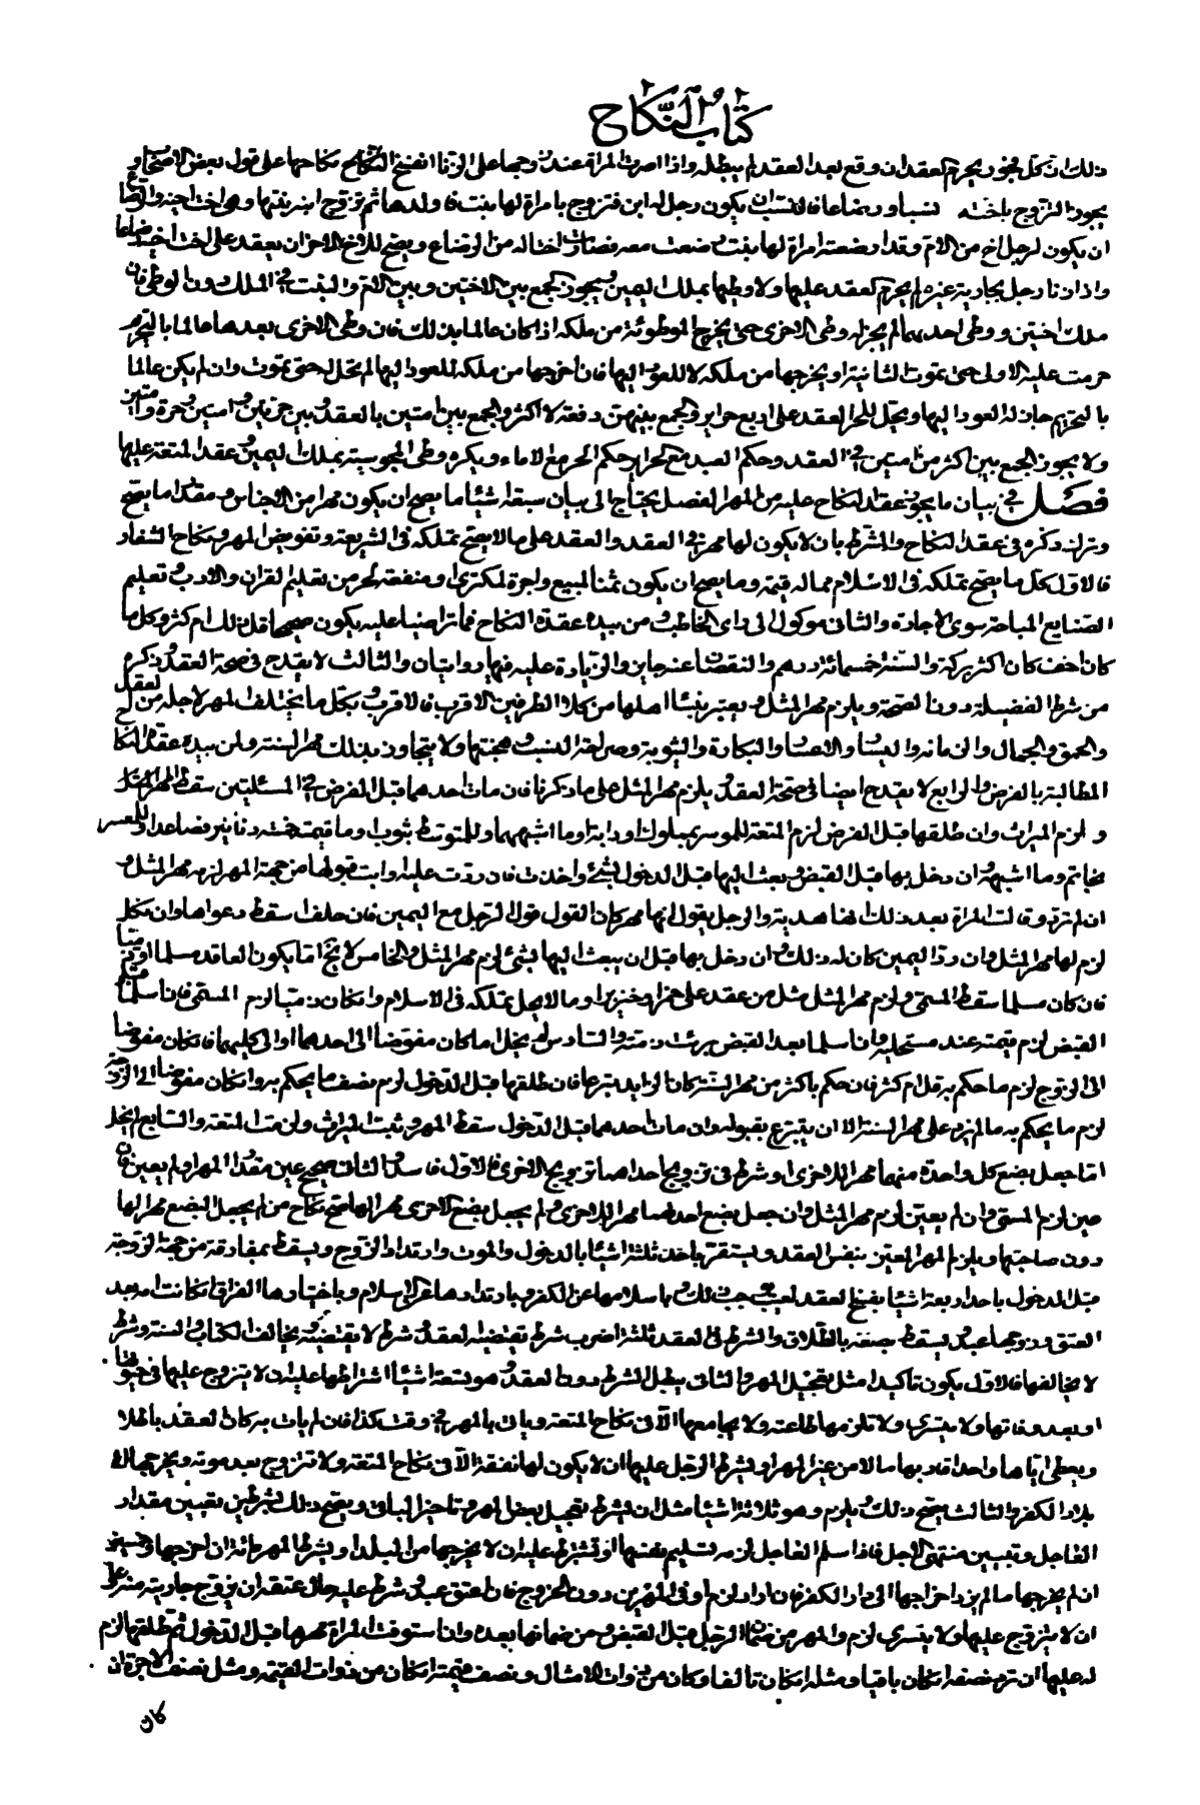 كتاب النكاح
ذلك ان كل فجور يحرم العقد ان وقع بعد العقد لم يبطله واذا اصرت المراة عند زوجها على الزنا انفسخ النكاح نكاحها على قول بعض الاصحاب و
يجوز التزوج باخته نسبا ورضاعا فالنسب ان يكون رجل له ابن فتزوج بامراة لها بنت فاولدها ثم تزوج ابنه بنتها وهى اخت اخيه والرضاع
ان يكون لرجل اخ من الام وقد ارضعته امراة لها بنت رضعت معه فصارت اختا له من الرضاع ويصح للاخ الاخر ان يعقد على اخت اخيه رضاعا
واذا زنا رجل بجارية غيره لم يحرم العقد عليها ولا وطيها بملك اليمين ويجوز الجمع بين الاختين وبين الام والبنت في الملك دون الوطى فان
ملك اختين ووطى احديهما لم يجز له وطى الاخرى حتى يخرج الموطوئة من ملكه اذا كان عالما بذلك فان وطى الاخرى بعدها عالما بالتحريم
حرمت عليه الاولى حتى تموت الثانية او يخرجها من ملكه لا للعود اليها فان اخرجها من ملكه للعود اليها لم تحل له حتى تموت وان لم يكن عالما
بالتحريم جاز له العود اليها ويحل للحر العقد على اربع حراير والجمع بينهن دفعة لا اكثر والجمع بين امتين بالعقد وبين حرتين وامتين وحرة وامتين
ولا يجوز الجمع بين اكثر من امتين في العقد وحكم العبد مع الحراير حكم الحر مع الاماء ويكره وطى المجوسية بملك اليمين وعقد المتعة عليها
فصل في بيان ما يجوز عقد النكاح عليه من المهر الفصل يحتاج الى بيان سبعة اشياء ما يصح ان يكون مهرا من الاجناس ومقدار ما يصح
وترك ذكره في عقد النكاح والشرط بان لا يكون لها مهر في العقد والعقد على ما لا يصح تملكه فى الشريعة وتفويض المهر ونكاح الشغار
فالاول كل ما يصح تملكه فى الاسلام مما له قيمة وما يصح ان يكون ثمنا لمبيع واجرة لمكترى او منفعة لحر من تعليم القران والادب وتعليم
الصنايع المباحة سوى الاجارة والثانى موكول الى راى الخاطب ومن بيده عقدة النكاح فما تراضيا عليه يكون صحيحا قل ذلك ام كثر وكل ما
كان اخف كان اكثر بركة والسنة خمسمائة درهم والنقصان عنه جايز والزيادة عليه فيها روايتان والثالث لا يقدح فى صحة العقد وذكره
من شرط الفضيلة دون الصحة ويلزم مهر المثل ويعتبر بنساء اهلها من كلا الطرفين الاقرب فالاقرب وبكل ما يختلف المهر لاجله من العقل
والحمق والجمال والزمانة واليسار والاعسار والبكارة والثيوبة وصراحة النسب وهجنتها ولا يتجاوز بذلك مهر السنة ولمن بيده عقدة النكاح
المطالبة بالفرض والرابع لا يقدح ايضا فى صحة العقد ويلزم مهر المثل على ما ذكرنا فان مات احدهما قبل الفرض في المسئلتين سقط المهر المثل
ولزم الميراث وان طلقها قبل الفرض لزم المتعة للموسر بمملوك او دابة وما اشبههما وللمتوسط بثوب وما قيمته خمسة دنانير فصاعدا وللمعسر
بخاتم وما اشبهه وان دخل بها قبل القبض وبعث اليها قبل الدخول بشئ واخذت فان ردت عليه وابت قبولها من جهة المهر لزمه مهر المثل و
ان لم ترد وقالت المراة بعد ذلك انها هدية والرجل يقول انها مهر كان القول قول الرجل مع اليمين فان حلف سقط دعواها وان نكل
لزم لها مهر المثل وان رد اليمين كان له ذلك وان دخل بها قبل ان يبعث اليها بشئ لزم مهر المثل والخامس لا يخ اما يكون العاقد مسلما او ذميا
فان كان مسلما سقط المسمى ولزم مهر المثل مثل من عقد على خمر او خنزير او ما لا يحل تملكه فى الاسلام وان كان ذميا لزم المسمى فان اسلما قبل
القبض لزم قيمته عند مستحليه وان اسلما بعد القبض برئت ذمته والسادس لم يخل اما كان مفوضا الى احدهما او الى كليهما فان كان مفوضا
الى الزوج لزم ما حكم به قل ام كثر فان حكم باكثر من مهر السنة كان الزايد تبرعا فان طلقها قبل الدخول لزم نصف ما يحكم به وان كان مفوضا الى الزوجة
لزم ما يحكم به ما لم يزد على مهر السنة الا ان يتبرع بقبوله وان مات احدهما قبل الدخول سقط المهر وثبت الميراث ولزمت المتعة والسابع لم يخل
اما جعل بضع كل واحدة منهما مهرا للاخرى او شرط فى تزويج احداهما تزويج الاخرى فالاول فاسد والثانى صحيح عين مقدار المهر او لم يعين فان
عين لزم المسمى وان لم يعين لزم مهر المثل وان جعل بضع احدهما مهرا للاخرى ولم يجعل بضع الاخرى مهرا لها صح نكاح من لم يجعل البضع مهرا لها
دون صاحبتها ويلزم المهر المعين بنفس العقد ويستقر باحد ثلثة اشياء بالدخول والموت وارتداد الزوج ويسقط بمفارقة من جهة الزوجة
قبل الدخول باحد اربعة اشياء بفسخ العقد لعيب يوجب ذلك وباسلامها عن الكفر وبارتدادها عن الاسلام وباختيارها الفراق اذا كانت امة بعد
العتق وزوجها عبد ويسقط نصفه بالطلاق والشرط فى العقد ثلثة اضرب شرط يقتضيه العقد وشرط لا يقتضيه ويخالف الكتاب والسنة وشرط
لا يخالفها فالاول يكون تاكيدا مثل تعجيل المهر والثانى يبطل الشرط دون العقد وهو تسعة اشياء اشتراطها عليه ان لا يتزوج عليها فى حيوتها
او بعد وفاتها ولا يتسرى ولا تلزمها طاعته ولا يجامعها الا فى نكاح المتعة وياتى بالمهر في وقت كذا فان لم يات به كان العقد باطلا
ويعطى اباها واحد اقاربها مالا من غير المهر او يشرط الرجل عليها ان لا يكون لها نفقة الا فى نكاح المتعة ولا تتزوج بعد موته ويخرجها الى
بلاد الكفر والثالث يصح ذلك ويلزم وهو ثلاثة اشياء مثل ان يشرط تعجيل بعض المهر وتاخير الباقى ويصح ذلك بشرطين تعيين مقدار
العاجل وتعيين منتهى الاجل فاذا سلم العاجل لزمه تسليم نفسها او تشرط عليه ان لا يخرجها من البلد او يشرط المهر مائة ان اخرجها وخمسين
ان لم يخرجها ما لم يرد اخراجها الى دار الكفر فان اراد لزم اوفى المهرين دون الخروج فان اعتق عبده وشرط عليه حال عتقه ان يزوج جاريته منه على
ان لا يتزوج عليها ولا يتسرى لزم والمهر من ضمان الرجل قبل القبض ومن ضمانها بعده وان استوفت المراة مهرها قبل الدخول ثم طلقها لزم
له عليها ان ترد نصفه ان كان باقيا ومثله ان كان تالفا وكان من ذوات الامثال ونصف قيمته ان كان من ذوات القيمة ومثل نصف الاجرة ان
كان